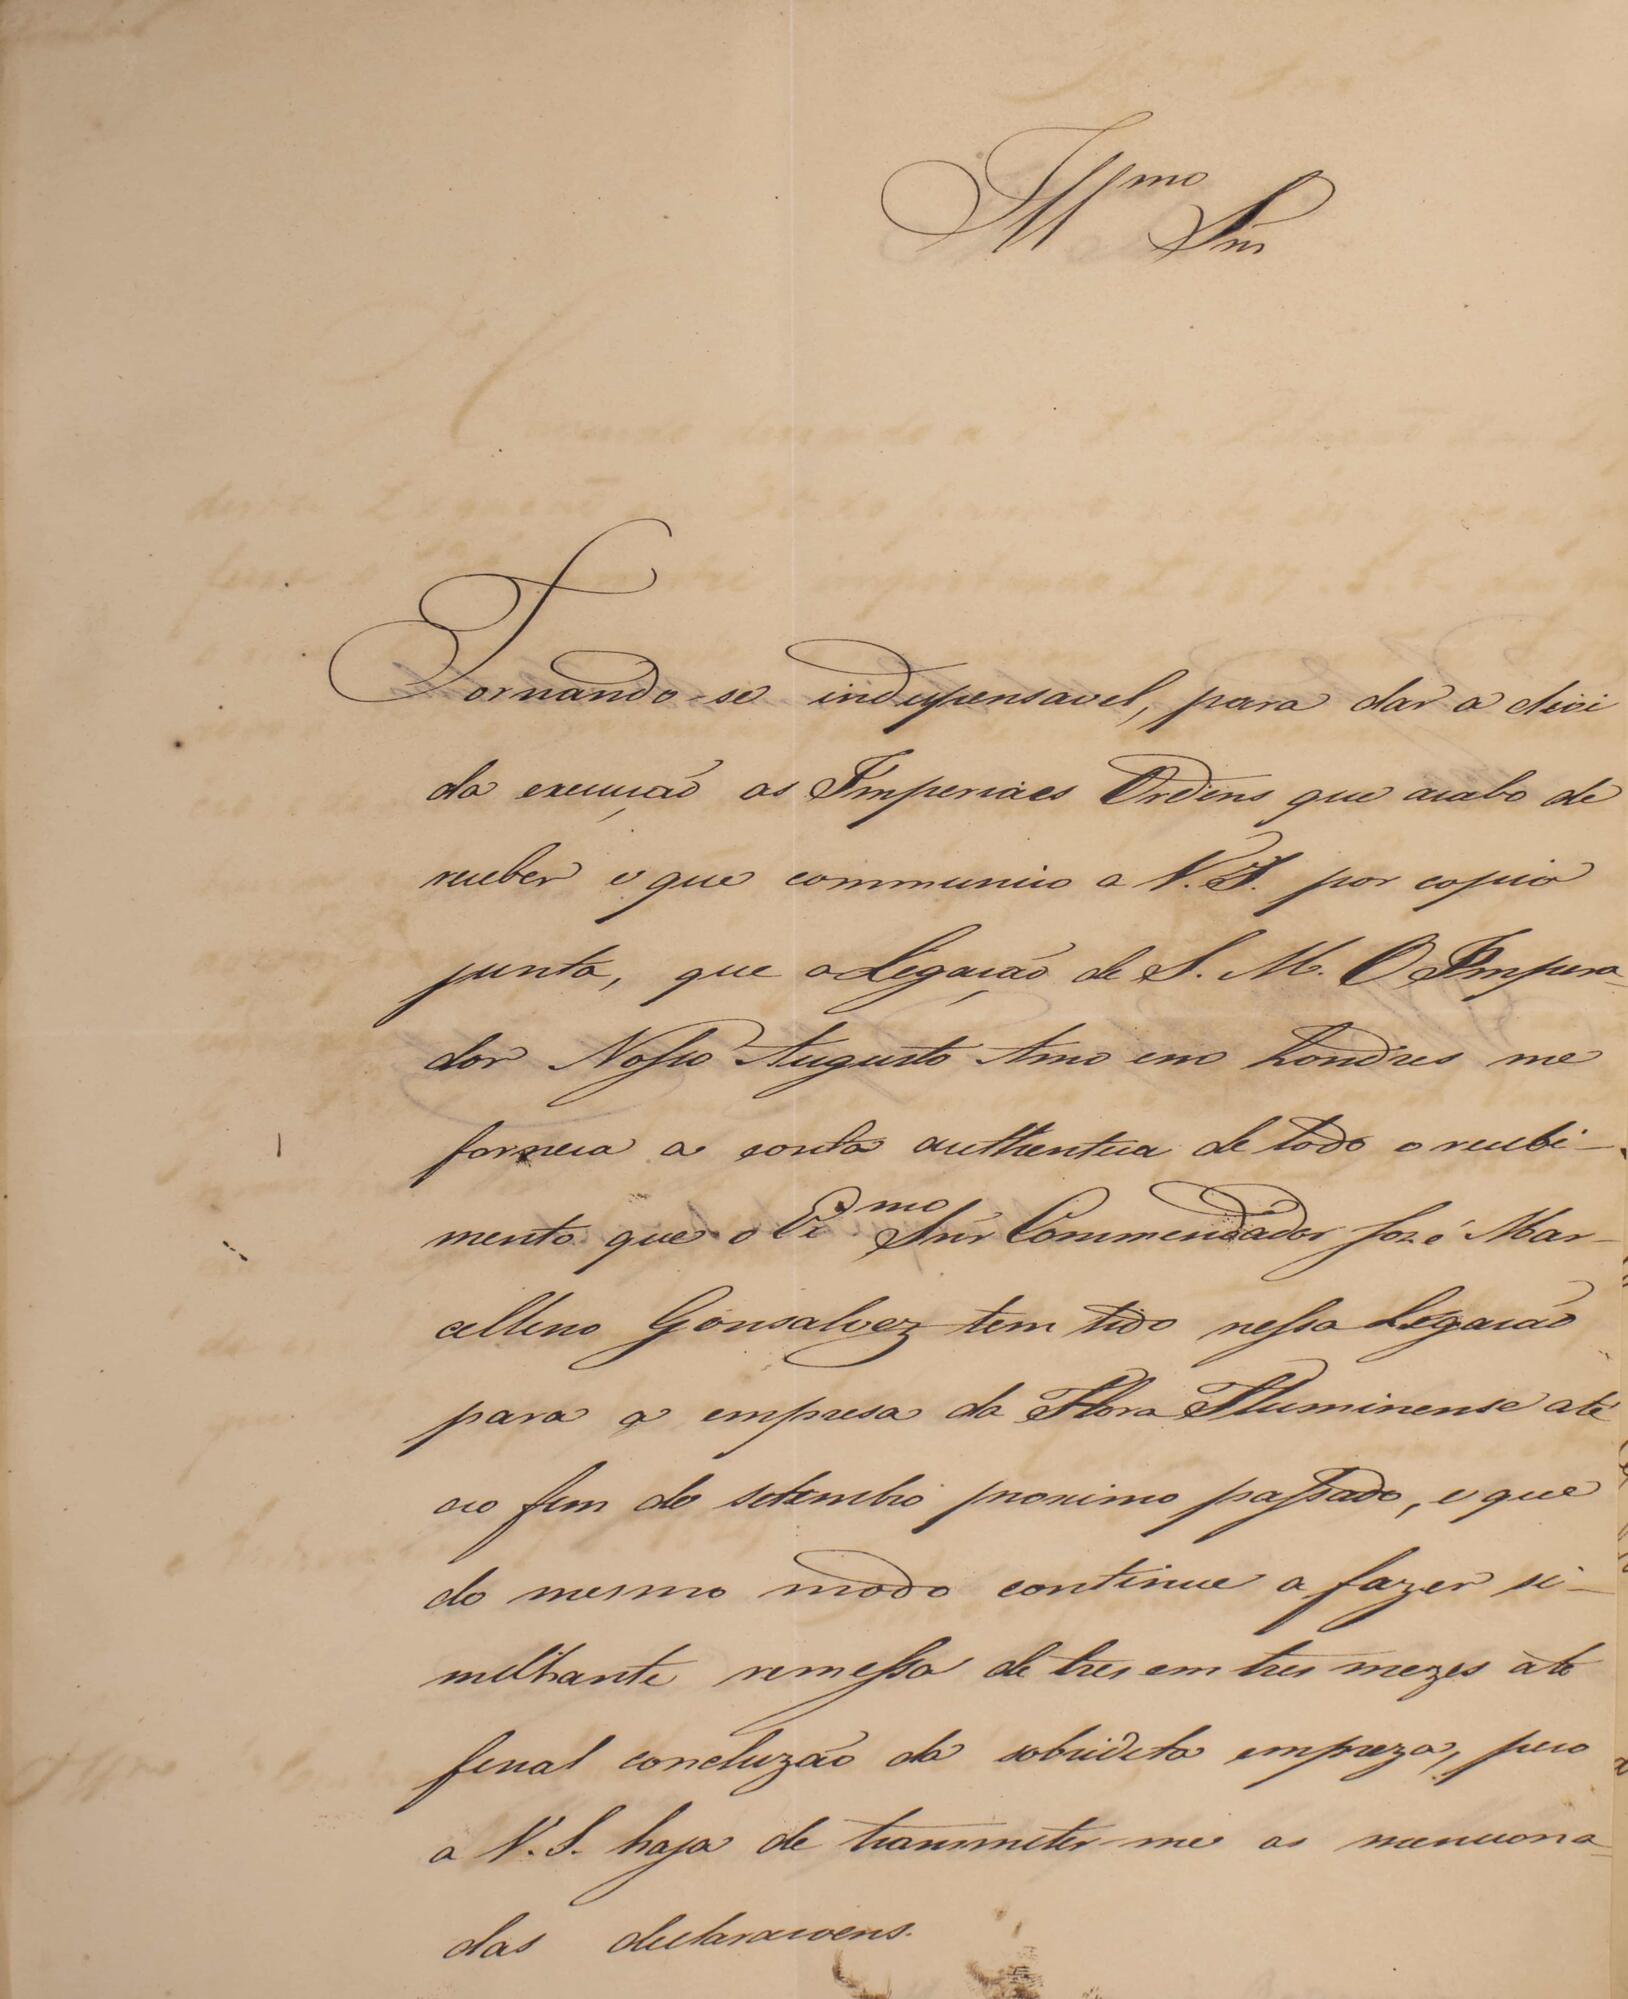 Illmo Snr
Tornando-se indispensavel, para dar a divi
da execução as Imperiaes Ordens que acabo de
receber e que communico a V. S. por copia
junta, que a Legação de S. M. O Impera-
dor Nosso Augusto Amo em Londres me
forneça a conta authentica de todo o recebi-
mento que o Exmo Snr Commendador Jozé Mar-
cellino Gonsalvez tem tido nessa Legação
para a empresa da Flora Fluminense até
ao fim de setembro proximo passado, e que
do mesmo modo continue a fazer si-
milhante remessa de tres em tres mezes até
final concluzão da sobredita empreza, peço
a V. S. haja de transmeter-me as menciona-
das declaraçoens.